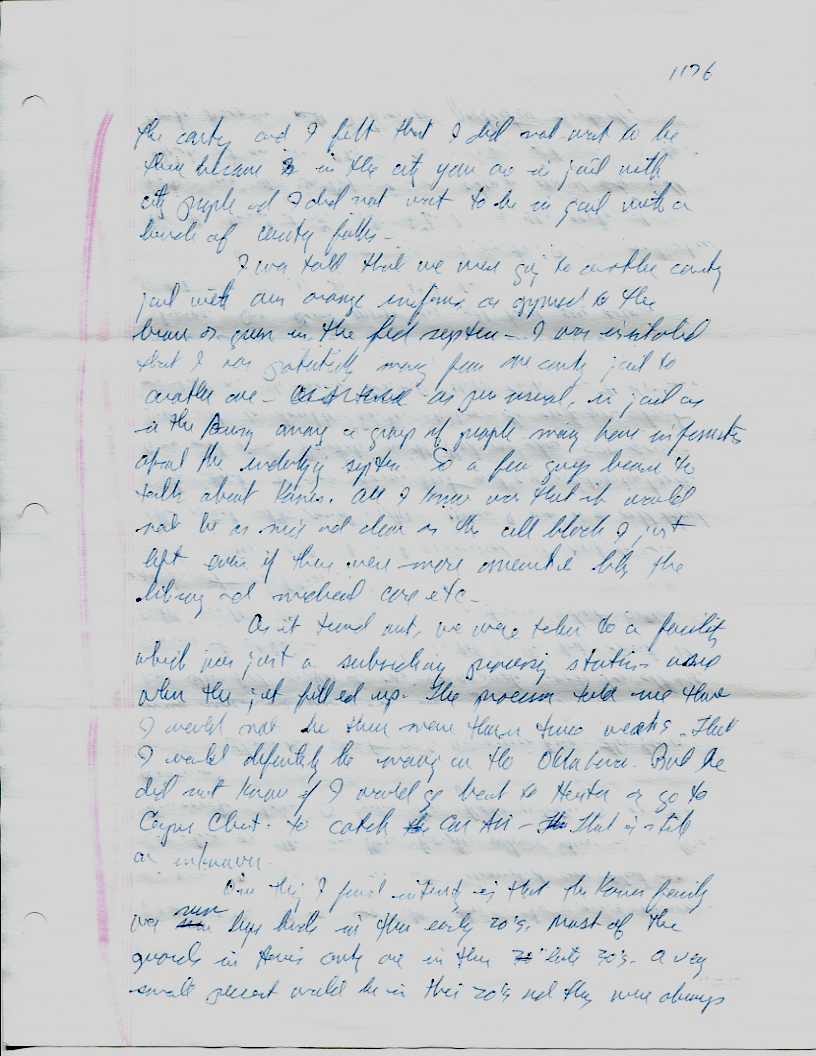 1176
the county and I felt that I did not want to be
there because in the city you are in jail with
city people and I did not want to be in jail with a
bunch of county folks -
I was told that we were going to another county
jail with our orange uniforms as opposed to the
brown or green in the fed system - I was
that I was potentially moving from one county jail to
another one - as per usual, in jail as
in the Army among a group of people many have
about the underlying system. So a few guys began to
talk about Karnes. All I knew was that it would
not be as nice and clean as the cell block I just
left even if there were more amenities like the
library and medical care etc -
As it turned out, we were taken to a facility
which was just a subsidiary processing station used
when the jet filled up. The processor told me that
I would not be there more than two weeks. That
I would definitely be moving on to Oklahoma. But he
did not know if I would go back to Houston or go to
Corpus Christ. to catch Con Air - That is still
an unknown.
One thing I find is that the Karnes facility
was run by kids in their early 20's. Most of the
guards in Harris county are in their late 30's - a very
small percent would be in their 20's and they were always